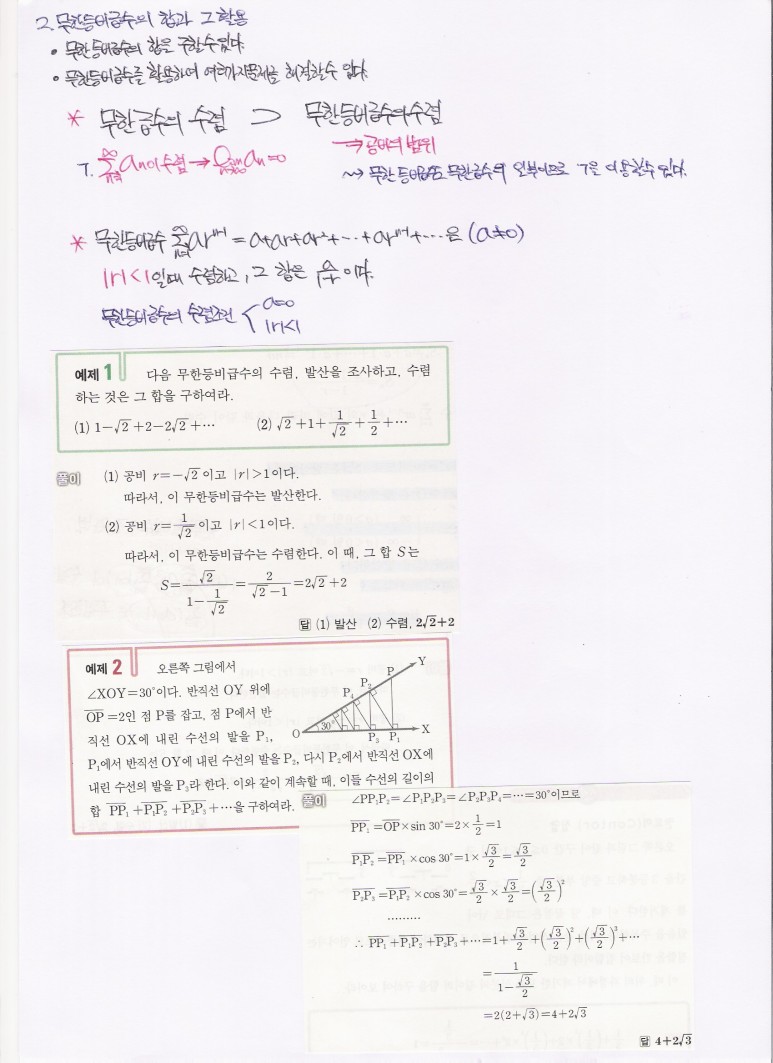 2. 무한등비급수의 합과 그 활용
• 무한등비급수의 합을 구할 수 있다.
• 무한등비급수를 활용하여 여러가지 문제를 해결할 수 있다.
* 무한급수의 수렴 ⊃ 무한등비급수의 수렴
→ 공비의 범위
ㄱ. ∑_{n=1}^{∞} an이 수렴 → lim_{n→∞} an=0
~> 무한등비급수도 무한급수의 일부이므로 ㄱ을 이용할 수 있다.
* 무한등비급수 ∑_{n=1}^{∞} ar^{n-1} = a+ar+ar²+…+ar^{n-1}+…은 (a≠0)
|r|<1일 때 수렴하고, 그 합은 a/(1-r) 이다.
무한등비급수의 수렴조건 < a=0
|r|<1
예제 1 다음 무한등비급수의 수렴, 발산을 조사하고, 수렴
하는 것은 그 합을 구하여라.
(1) 1−√2+2−2√2+⋯ (2) √2+1+1/√2+1/2+⋯
풀이 (1) 공비 r=−√2이고 |r|>1이다.
따라서, 이 무한등비급수는 발산한다.
(2) 공비 r=1/√2이고 |r|<1이다.
따라서, 이 무한등비급수는 수렴한다. 이 때, 그 합 S는
S=√2/(1−1/√2)=2/(√2−1)=2√2+2
답 (1) 발산 (2) 수렴, 2√2+2
예제 2 오른쪽 그림에서
∠XOY=30°이다. 반직선 OY 위에
OP=2인 점 P를 잡고, 점 P에서 반
직선 OX에 내린 수선의 발을 P₁,
P₁에서 반직선 OY에 내린 수선의 발을 P₂, 다시 P₂에서 반직선 OX에
내린 수선의 발을 P₃라 한다. 이와 같이 계속할 때, 이들 수선의 길이의
합 PP₁+P₁P₂+P₂P₃+⋯을 구하여라.
Y
P
P₂
P₄
30°
O
P₃ P₁ X
풀이 ∠PP₁P₂=∠P₁P₂P₃=∠P₂P₃P₄=⋯=30°이므로
PP₁=OP×sin 30°=2×1/2=1
P₁P₂=PP₁×cos 30°=1×√3/2=√3/2
P₂P₃=P₁P₂×cos 30°=√3/2×√3/2=(√3/2)²
⋯⋯⋯
∴ PP₁+P₁P₂+P₂P₃+⋯=1+√3/2+(√3/2)²+(√3/2)³+⋯
=1/(1−√3/2)
=2(2+√3)=4+2√3
답 4+2√3